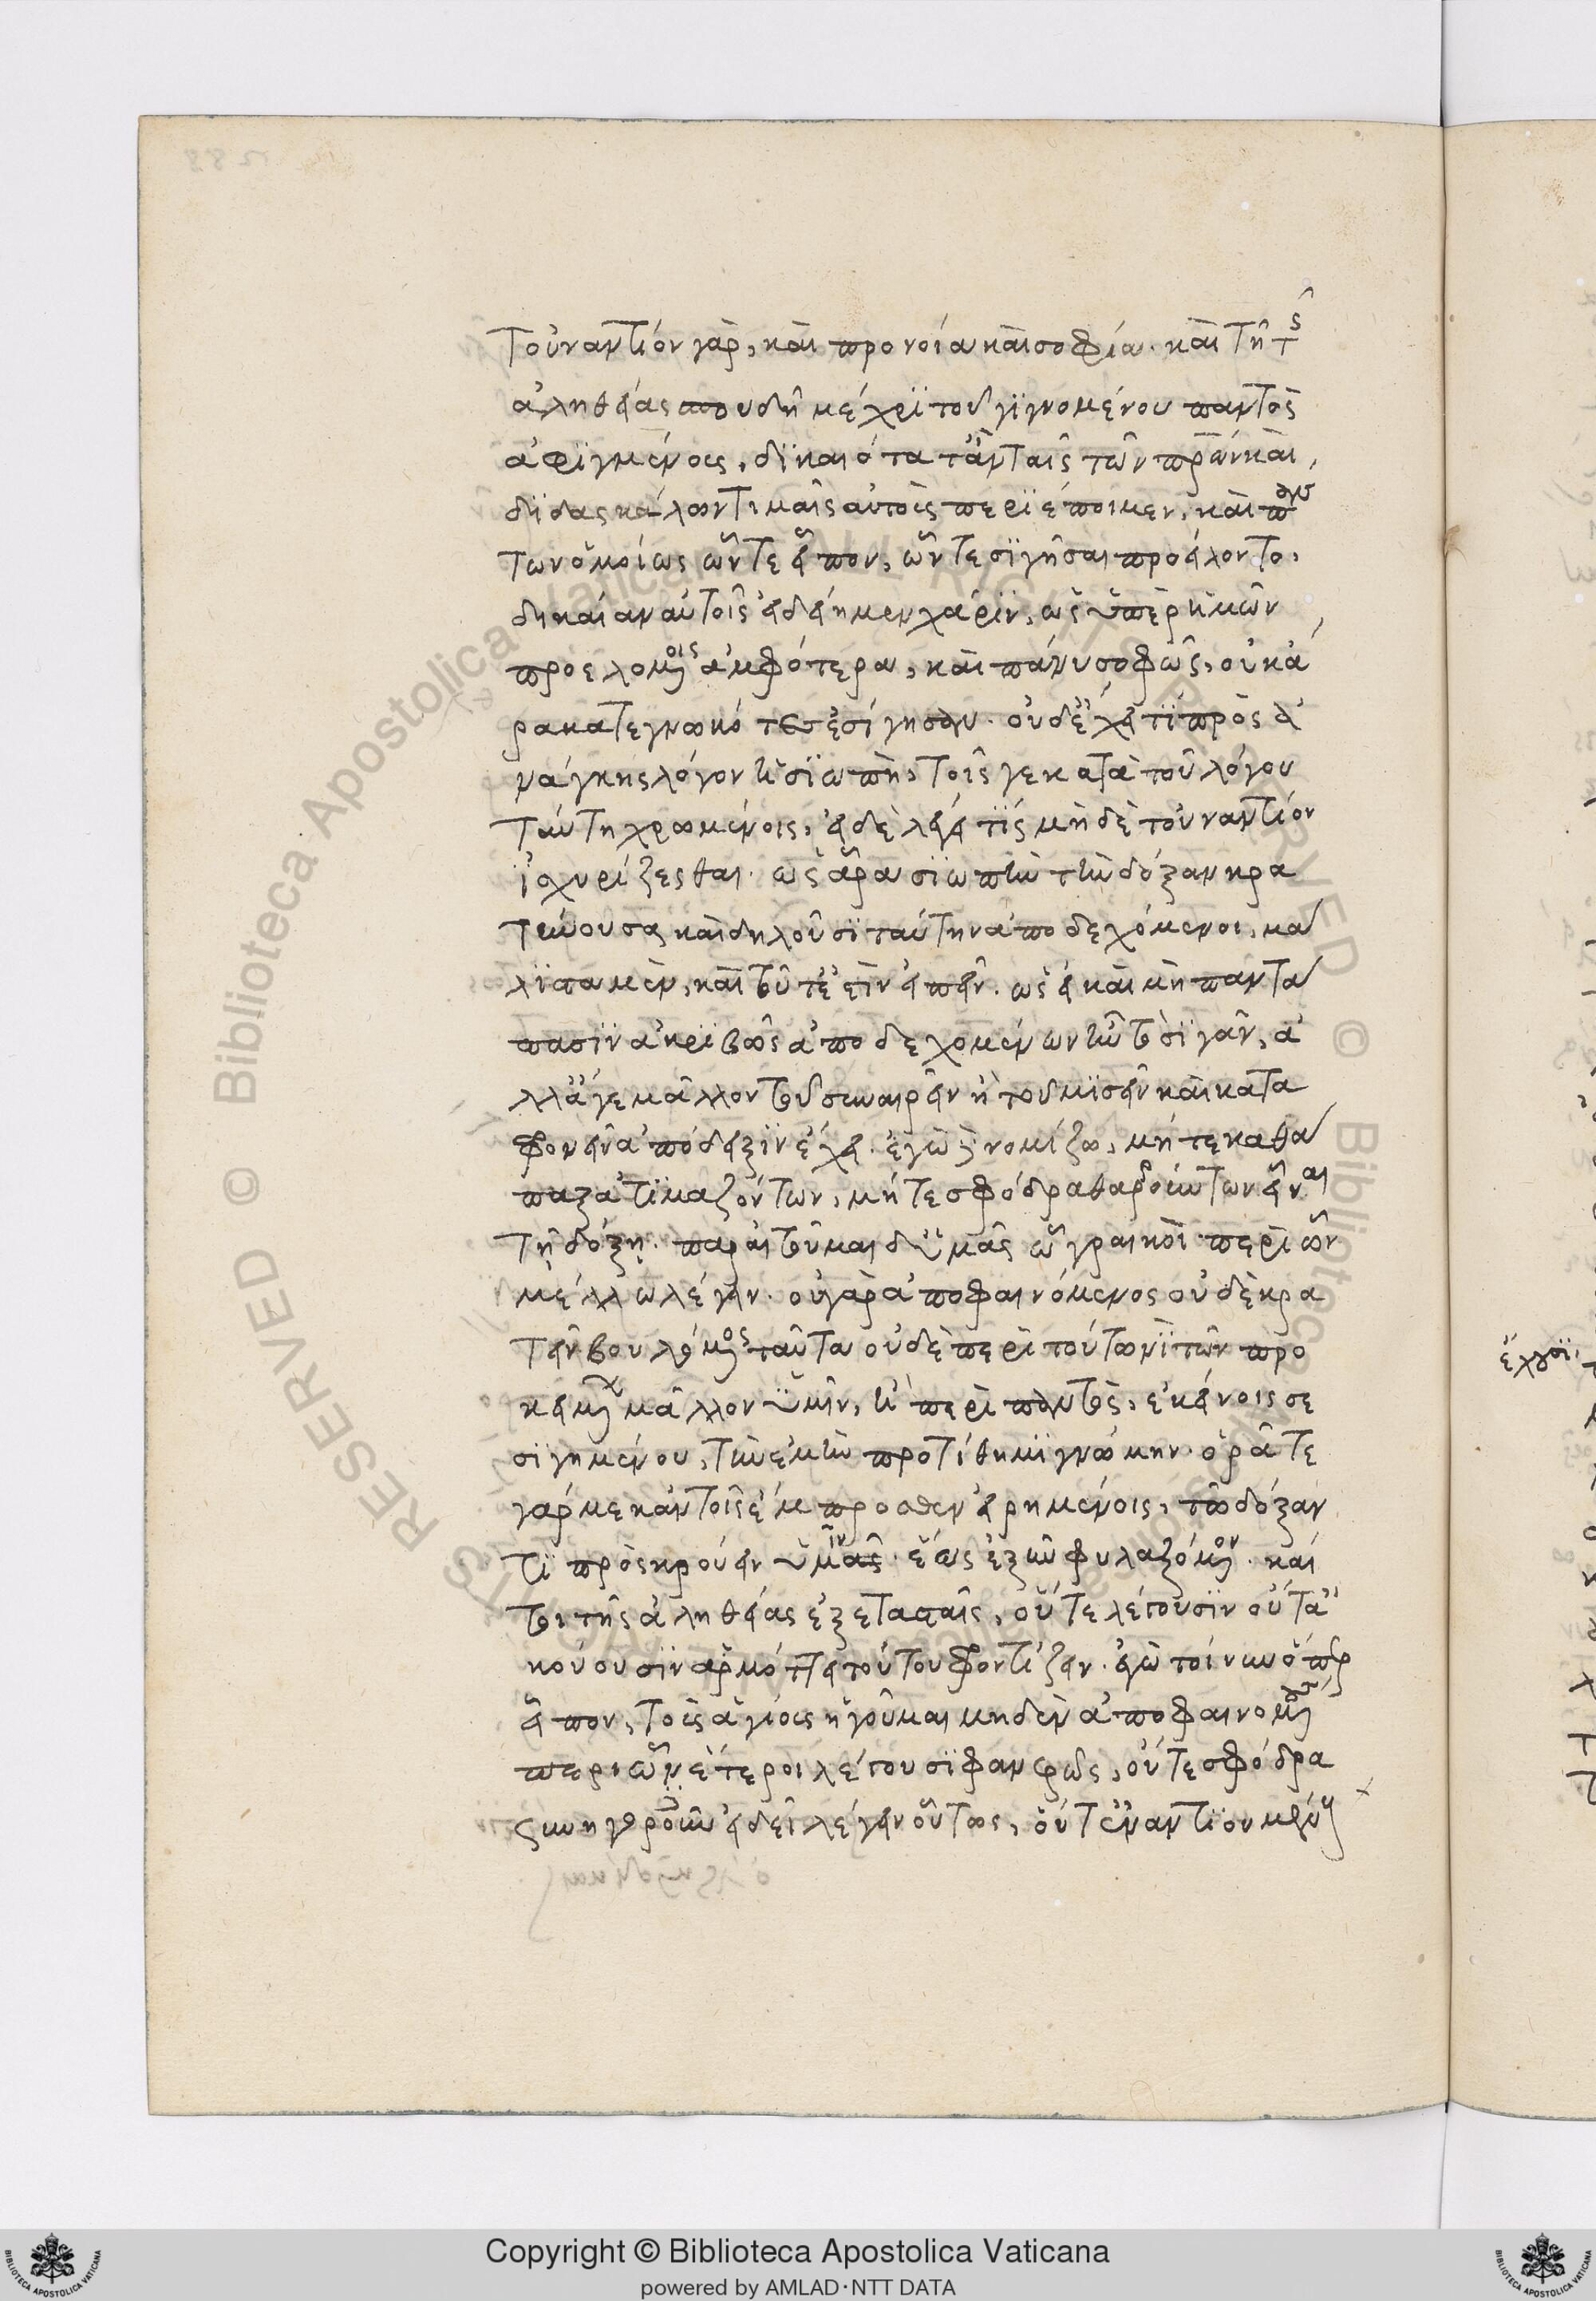 τοὐναντίον γὰρ, καὶ προνοία καὶ σοφία. καὶ τῇ τῆς
ἀληθείας σπουδῇ μέχρι τοῦ γιγνομένου παντὸς
ἀφιγμένοις, δικαιότατ' ἂν ταῖς τῶν πρων καὶ
διδασκάλων τιμαῖς αὐτοὺς περιέποιμεν, καὶ
τῶν ὁμοίως ὧν τε εἶπον, ὧν τε σιγῆσαι προείλοντο,
δικαίαν αὐτοῖς εἰδείημεν χάριν, ὡς ὑπὲρ ἡμῶν
προελομένοις ἀμφότερα, καὶ πάνυ σοφῶς, οὐκ ἄ
ρα κατεγνωκότες ἐσίγησαν. οὐδ' ἔχει τι πρὸς ἀ
νάγκης λόγον ἡ σιωπὴ, τοῖς γε κατὰ τοῦ λόγου
ταύτῃ χρωμένοις, εἰ δὲ λέγει τίς μηδὲ τοὐναντίον
ἰσχυρίζεσθαι. ὡς ἄρα σιωπῇ τὴν δόξαν κρα
τύνουσα καὶ δηλοῦσι ταύτην ἀποδεχόμενοι, μά
λιστα μὲν, καὶ τοῦτ' ἔστιν εἰπεῖν. ὡς εἰ καὶ μὴ παντά
πασιν ἀκριβῶς ἀποδεχομένων ἦν τὸ σιγᾶν, ἀ
λλά γε μᾶλλον τοῦ συναιρεῖν ἢ τοῦ μισεῖν καὶ κατα
φρονεῖν ἀπόδειξιν ἔχει. ἐγὼ δὲ νομίζω, μήτε καθά
παξ ἀτιμαζόντων, μήτε σφόδρα θαρρούντων εἶναι
τῇ δόξῃ. παραιτοῦμαι δ' ὑμᾶς ὦ γραικοὶ περὶ ὧν
μέλλω λέγειν. οὐ γὰρ ἀποφαινόμενος οὐδὲ κρα
τεῖν βουλόμενος ταῦτα οὐδὲ περὶ τούτων ἢ τῶν προ
κειμένων μᾶλλον ὑμῖν, ἢ περὶ παντὸς, ἐκείνοις σε
σιγημένου, τὴν ἐμὴν προτίθημι γνώμην. ὁρᾶτε
γάρ με κἀν τοῖς ἔμπροσθεν εἰρημένοις, τῶ δόξαν
τι προσκρούειν ὑμᾶς ῖν. ἕως ἐξῆν φυλαξόμενον. καί
τοι τῆς ἀληθείας ἐξετασταῖς, οὔτε λέγουσιν οὔτ' ἀ
κούουσιν ἁρμόττει τούτου φροντίζειν. ἐγὼ τοίνυν ὅπερ
εἶπον, τοὺς ἁγίους ἡγοῦμαι μηδὲν ἀποφαινομένους
περὶ ὧν ἕτεροι λέγουσι φανερῶς, οὔτε σφόδρα
συνηγοροῦν εἰδεῖ λέγειν οὕτως, οὔτ' ἐναντίον
ἔχουσι,